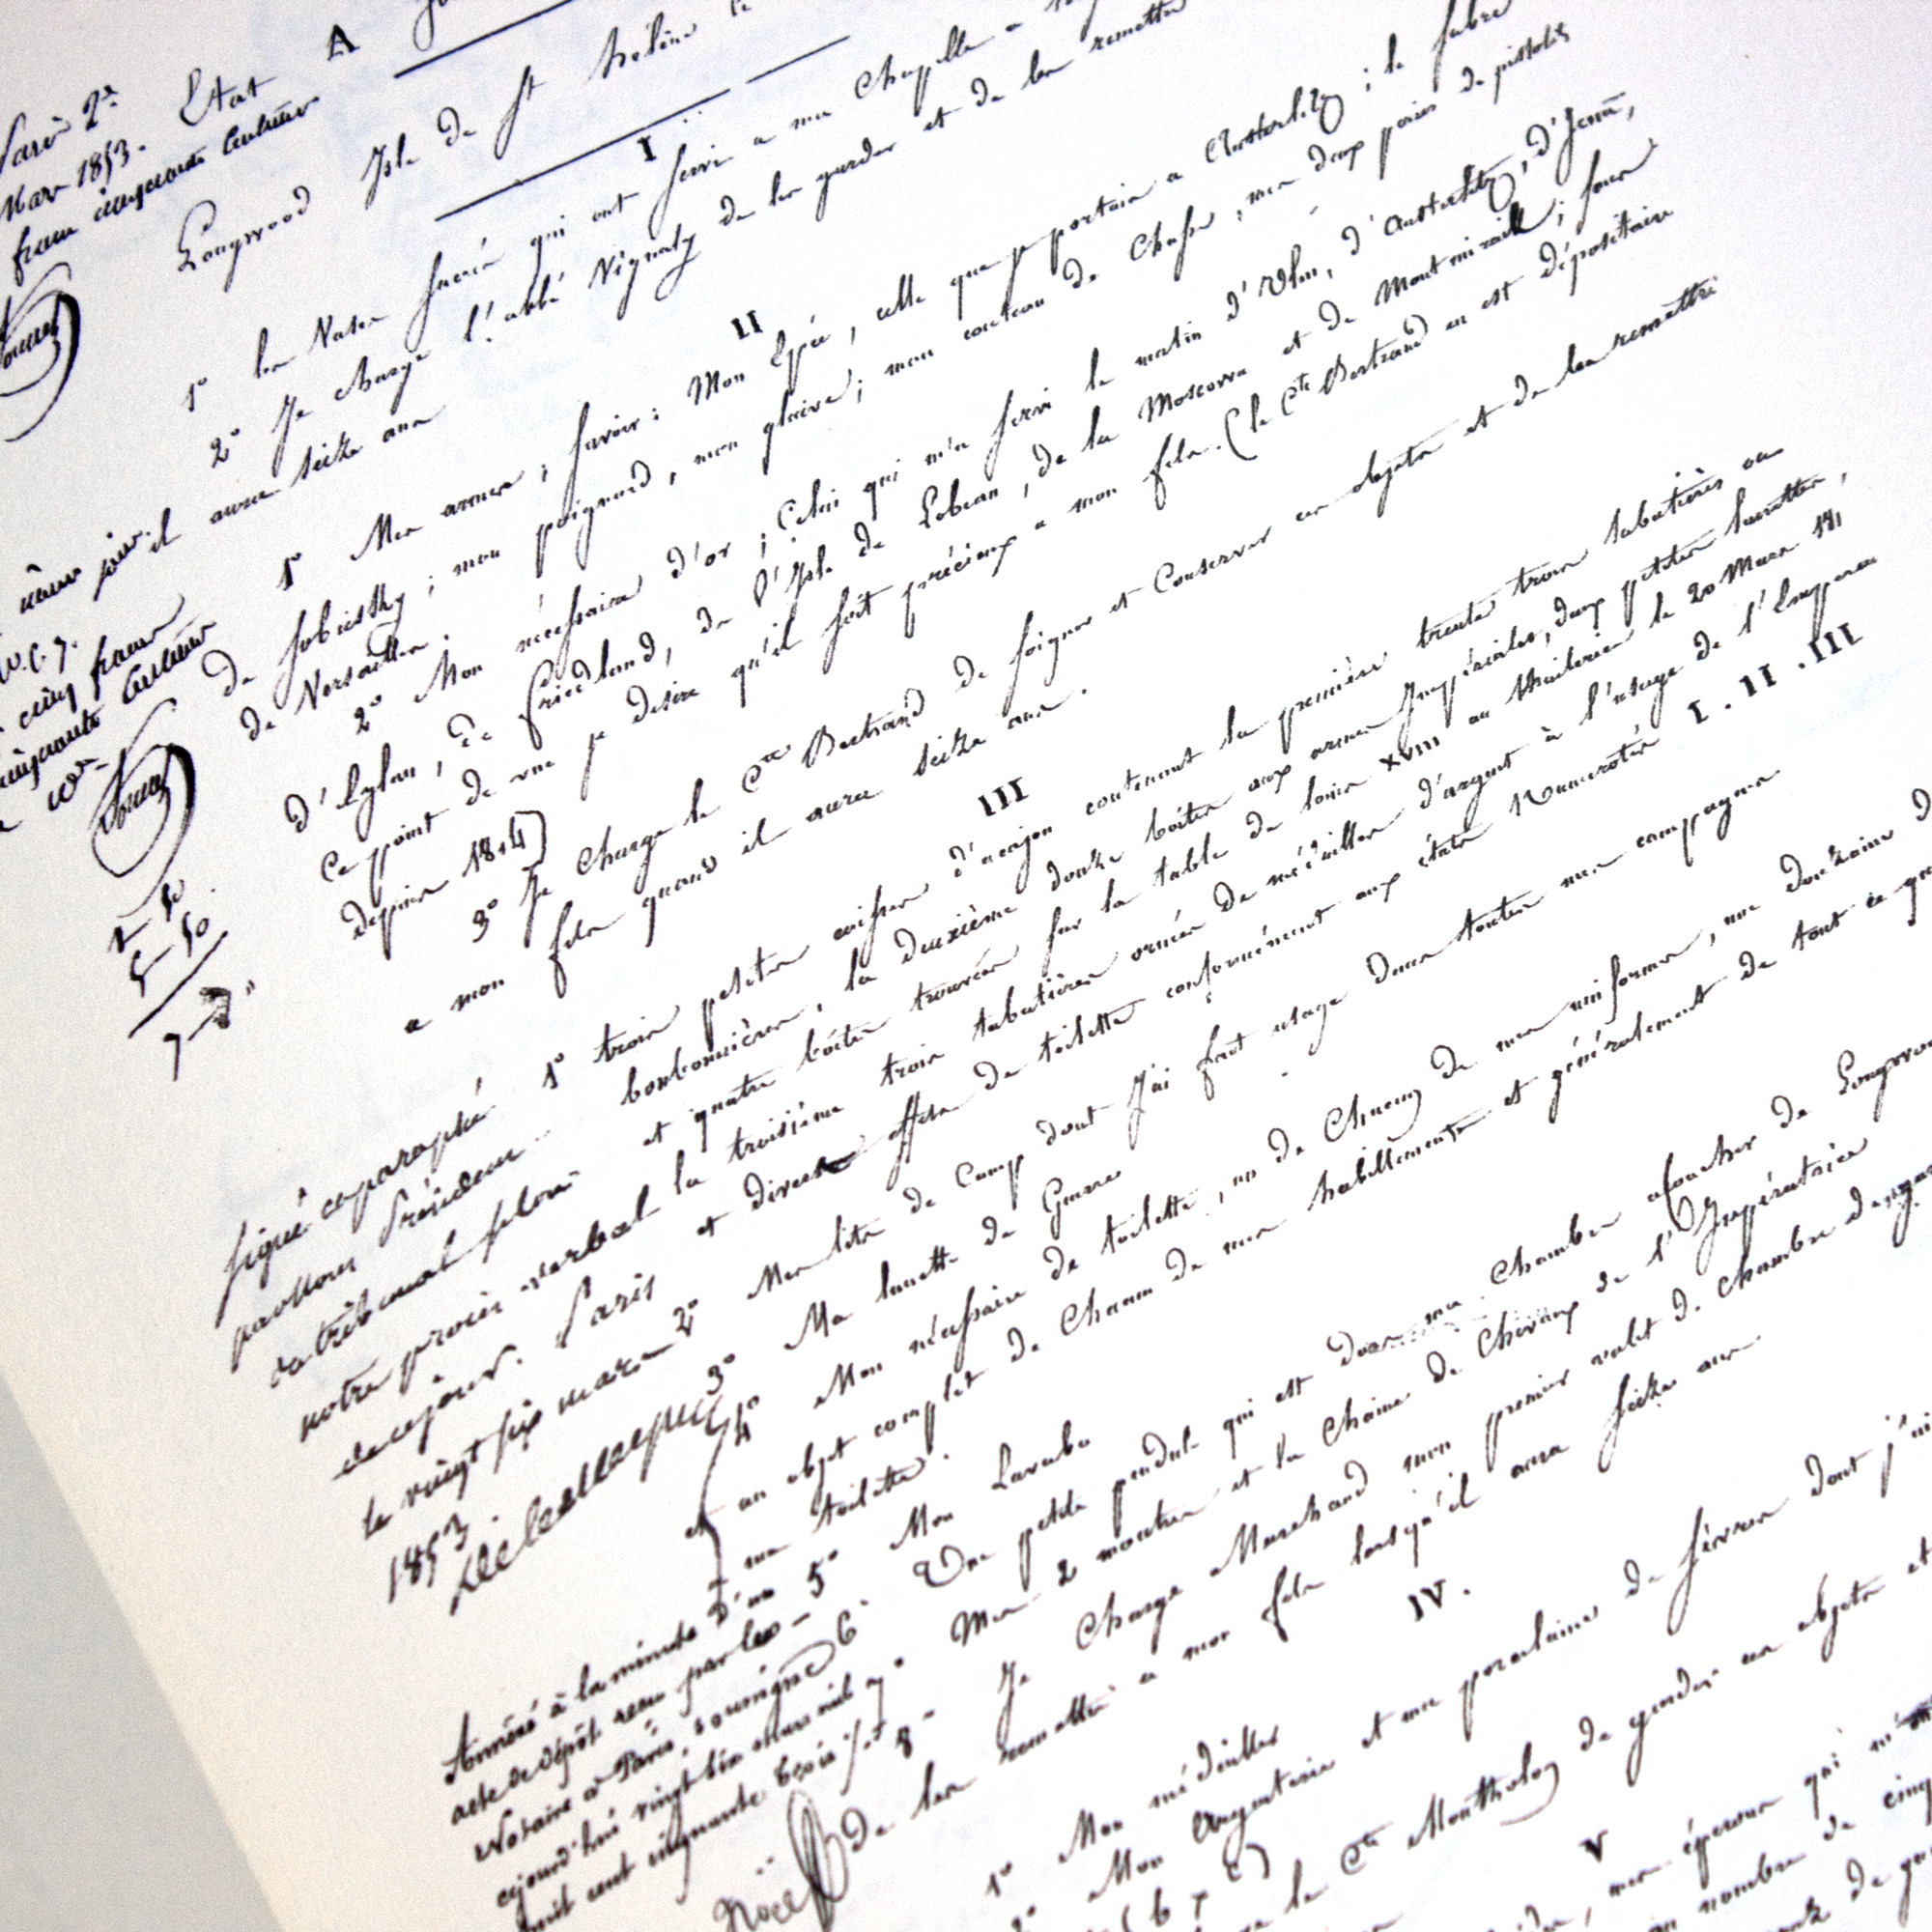 Etat A
Longwood Isle de St hélène le
I
1° les Vases sacrés qui ont servi a ma Chapelle a
2° Je charge l'abbé Vignaly de les garder et de les remettre
il aura seize ans
II
1° Mes armes ; savoir : Mon Epée, celle que je portais a Austerlitz ; le sabre
de Sobiesky ; mon poignard, mon glaive ; mon couteau de Chasse, mes deux paires de pistolets
de Versailles.
2° Mon nécessaire d'or ; Celui qui m'a servi le matin d'Ulm, d'Austerlitz, d'Jena,
d'Eylau, de friedland, de l'Isle de Lobeau, de la Moscowa et de Montmirail ; sous
Ce point de vue je desire qu'il soit précieux a mon fils. (le Cte Bertrand en est dépositaire
depuis 1814)
3° Je Charge le Cte Bertrand de soigner et Conserver ces objets et de les remettre
a mon fils quand il aura seize ans.
III
1° trois petites caisses d'acajou contenant la première trente trois tabatières ou
bonbonnières, la deuxième douze boites aux armes Impériales, deux petites lunettes,
et quatre boites trouvées sur la table de louis XVIII au thuileries le 20 Mars 181
la troisième trois tabatières ornées de médailles d'argent à l'usage de l'Empereur
et divers effets de toilette conformément aux états Numérotés I . II . III
2° Mes lits de Camp dont J'ai fait usage dans toutes mes campagnes
3° Ma lunette de Guerre
4° Mon nécessaire de toilette, un de Chacun de mes uniformes, une douzaine d
et un objet complet de Chacun de mes habillements et généralement de tout ce qu
ma toilette.
5° Mon Lavabo
6° Une petite pendule qui est dans ma Chambre acoucher de Longwood
7° Mes 2 montres et la Chaine de Cheveux de l'Impératrice
8° Je Charge Marchand mon premier valet de Chambre de ga
de les remettre a mon fils lorsqu'il aura seize ans
IV.
1° Mon médailler
2° Mon Argenterie et ma porcelaine de sèvres dont j'ai
le Cte Montholon de garder ces objets et
V
mes éperons qui m'ont
au nombre de cinq
Paris 2e
Mars 1853.
franc cinquante Centimes
même jour
cinq francs
cinquante Centimes
2-50
5-50
7-
signé et paraphé
par nous Président
du tribunal selon
notre procès verbal
de ce jour. Paris
le vingt six mars
1853.
Annéxé à la minute d'un
acte de dépôt reçu par les
Notaires à Paris, soussignés
cejourd'hui vingt six mars mil
huit cent cinquante trois
Noël